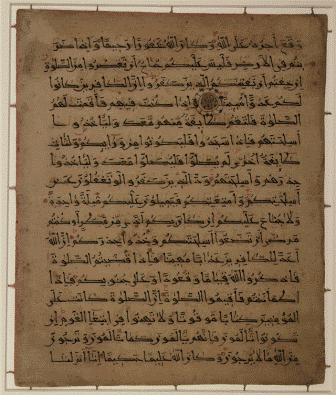 وقع أجره على الله وكان الله غفورا رحيما وإذا ضر
بتم في الأرض فليس عليكم جناح أن تقصروا من الصلوة
إن خفتم أن يفتنكم الذين كفروا إن الكفرين كانوا
لكم عدوا مبينا وإذا كنت فيهم فأقمت لهم
الصلوة فلتقم طائفة منهم معك وليأخذوا
أسلحتهم فإذا سجدوا فليكونوا من ورائكم ولتأت
طائفة أخرى لم يصلوا فليصلوا معك وليأخذوا
حذرهم وأسلحتهم ود الذين كفروا لو تغفلون عن
أسلحتكم وأمتعتكم فيميلون عليكم ميلة وحدة
ولا جناح عليكم إن كان بكم أذى من مطر أو كنتم
مرضى أن تضعوا أسلحتكم وخذوا حذركم إن الله
أعد للكفرين عذابا مهينا فإذا قضيتم الصلوة
فاذكروا الله قياما وقعودا وعلى جنوبكم فإذا
اطمأننتم فأقيموا الصلوة إن الصلوة كانت على
المؤمنين كتابا موقوتا ولا تهنوا في ابتغاء القوم إن
تكونوا تألمون فإنهم يألمون كما تألمون وترجون
من الله ما لا يرجون وكان الله عليما حكيما إنا أنزلنا